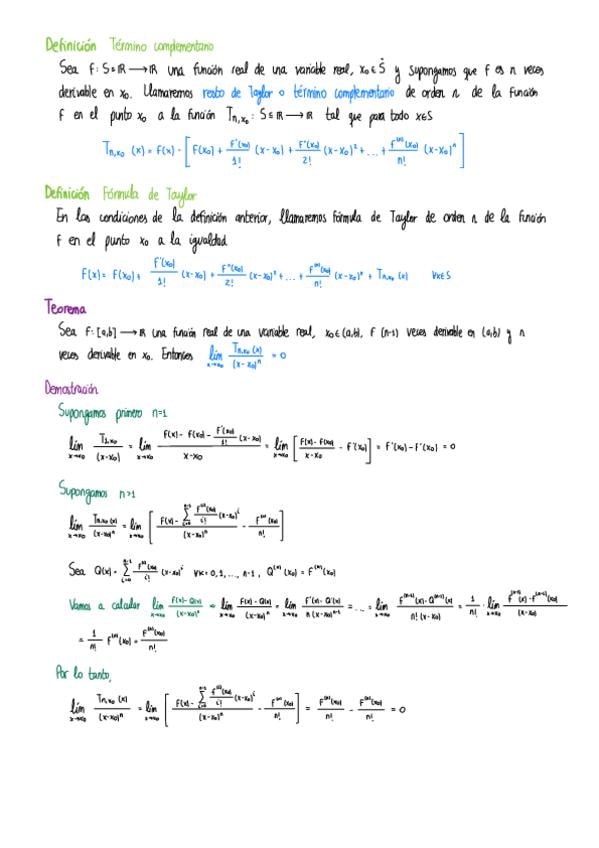 Definición Término complementario
Sea f: S⊆ℝ ⟶ ℝ una función real de una variable real, x₀ ∈ S̊ y supongamos que f es n veces
derivable en x₀. Llamaremos resto de Taylor o término complementario de orden n de la función
f en el punto x₀ a la función T_{n,x₀}: S⊆ℝ ⟶ ℝ tal que para todo x∈S
T_{n,x₀}(x) = f(x) - [f(x₀) + f'(x₀)/1! (x-x₀) + f''(x₀)/2! (x-x₀)² + ... + f^{(n)}(x₀)/n! (x-x₀)^n]
Definición Fórmula de Taylor
En las condiciones de la definición anterior, llamaremos fórmula de Taylor de orden n de la función
f en el punto x₀ a la igualdad
f(x) = f(x₀) + f'(x₀)/1! (x-x₀) + f''(x₀)/2! (x-x₀)² + ... + f^{(n)}(x₀)/n! (x-x₀)^n + T_{n,x₀}(x) ∀x∈S
Teorema
Sea f: [a,b] ⟶ ℝ una función real de una variable real, x₀∈(a,b), f (n-1) veces derivable en (a,b) y n
veces derivable en x₀. Entonces lím_{x→x₀} T_{n,x₀}(x)/(x-x₀)^n = 0
Demostración
Supongamos primero n=1
lím_{x→x₀} T_{1,x₀}/(x-x₀) = lím_{x→x₀} (f(x) - f(x₀) - f'(x₀)/1! (x-x₀))/(x-x₀) = lím_{x→x₀} [(f(x) - f(x₀))/(x-x₀) - f'(x₀)] = f'(x₀) - f'(x₀) = 0
Supongamos n>1
lím_{x→x₀} T_{n,x₀}(x)/(x-x₀)^n = lím_{x→x₀} [(f(x) - ∑_{i=0}^{n-1} f^{(i)}(x₀)/i! (x-x₀)^i)/(x-x₀)^n - f^{(n)}(x₀)/n!]
Sea Q(x) = ∑_{i=0}^{n-1} f^{(i)}(x₀)/i! (x-x₀)^i ∀k=0,1,..., n-1, Q^{(k)}(x₀) = f^{(k)}(x₀)
Vamos a calcular lím_{x→x₀} (f(x) - Q(x))/(x-x₀)^n = lím_{x→x₀} (f(x) - Q(x))/(x-x₀)^n = lím_{x→x₀} (f'(x) - Q'(x))/(n(x-x₀)^{n-1}) = ... = lím_{x→x₀} (f^{(n-1)}(x) - Q^{(n-1)}(x))/(n!(x-x₀)) = 1/n! · lím_{x→x₀} (f^{(n-1)}(x) - f^{(n-1)}(x₀))/(x-x₀)
= 1/n! f^{(n)}(x₀) = f^{(n)}(x₀)/n!
Por lo tanto,
lím_{x→x₀} T_{n,x₀}(x)/(x-x₀)^n = lím_{x→x₀} [(f(x) - ∑_{i=0}^{n-1} f^{(i)}(x₀)/i! (x-x₀)^i)/(x-x₀)^n - f^{(n)}(x₀)/n!] = f^{(n)}(x₀)/n! - f^{(n)}(x₀)/n! = 0